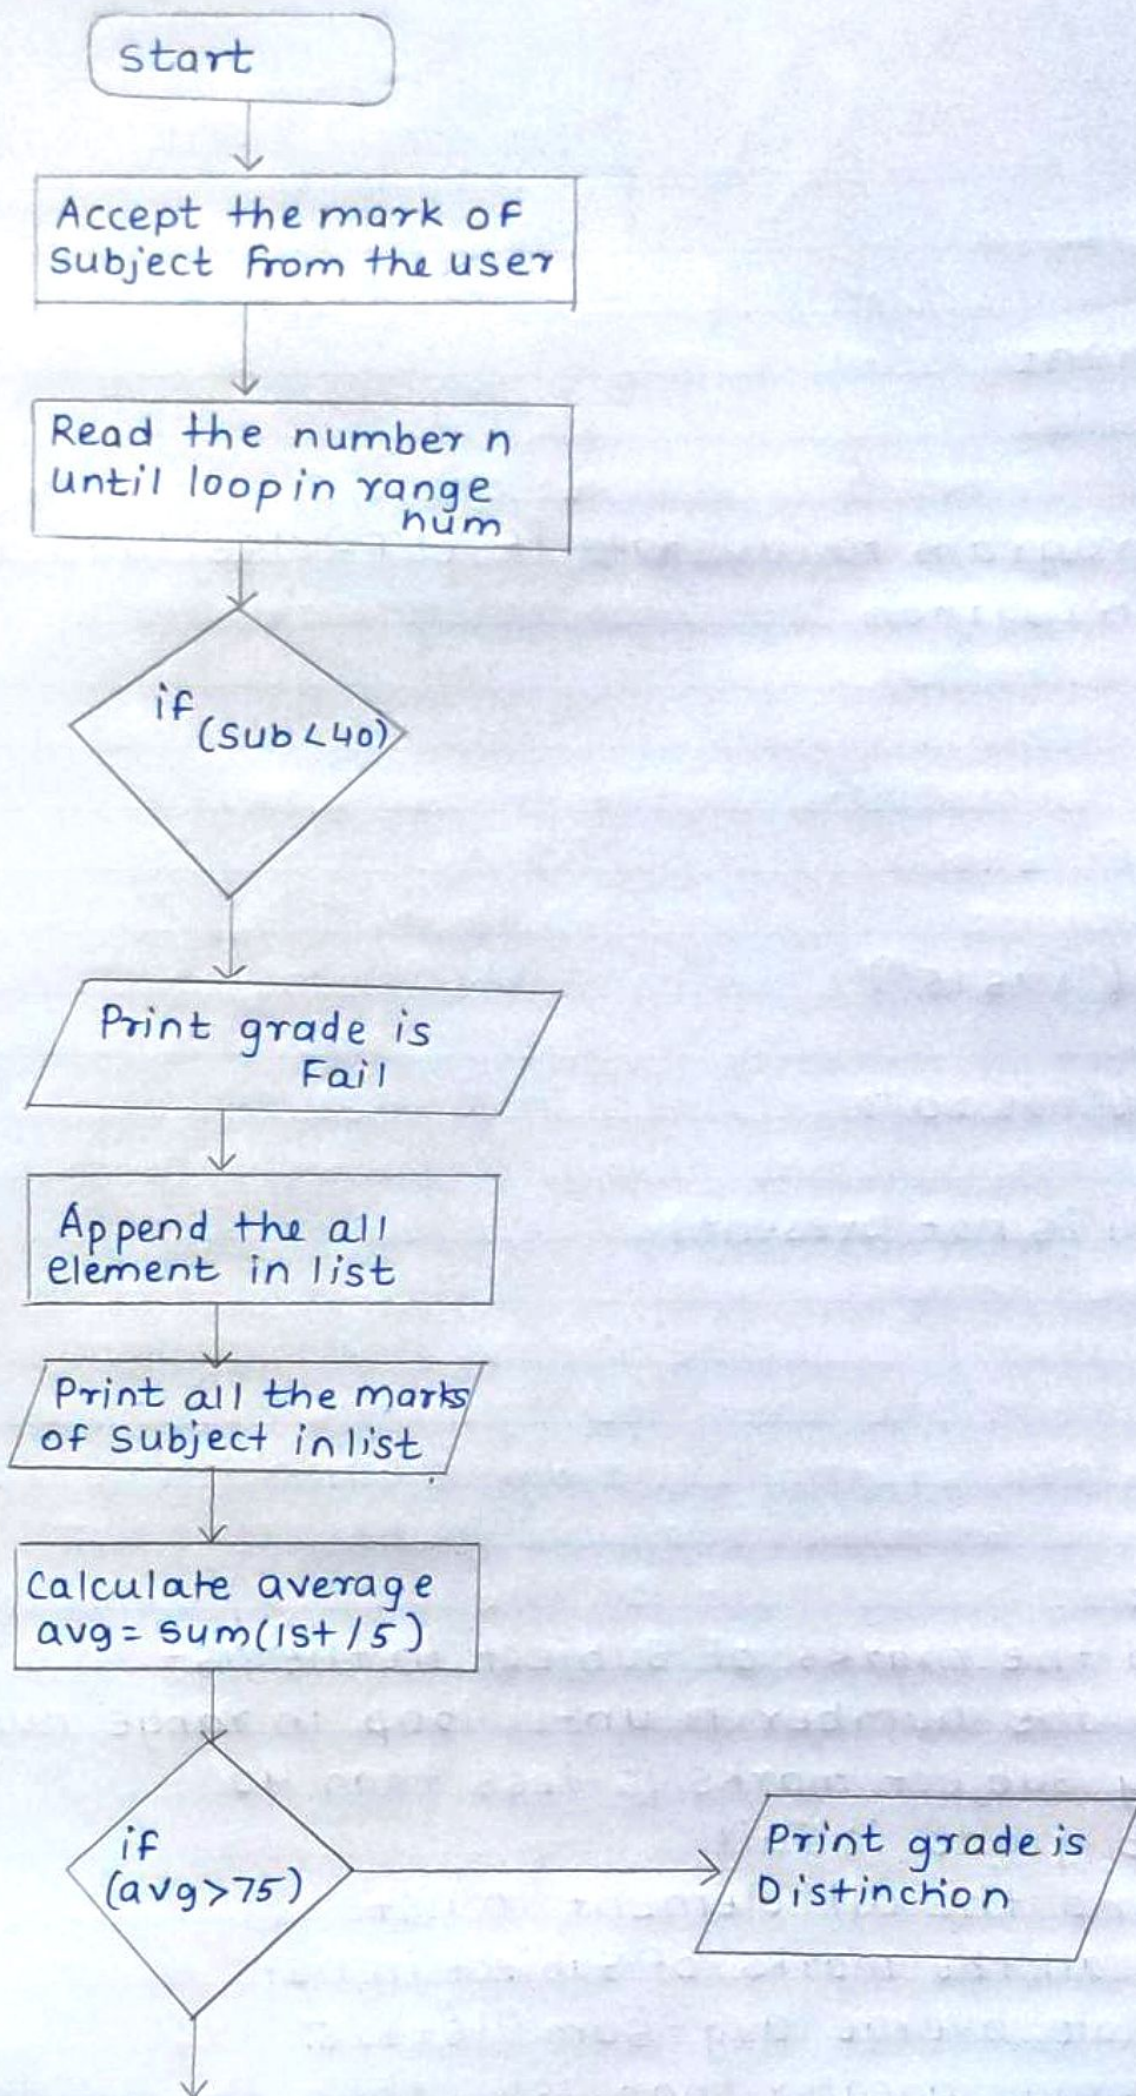 start
Accept the mark of
Subject from the user
Read the number n
until loop in range
num
if
(Sub < 40)
Print grade is
Fail
Append the all
element in list
Print all the marks
of subject in list
Calculate average
avg = sum(lst / 5)
if
(avg > 75)
Print grade is
Distinction